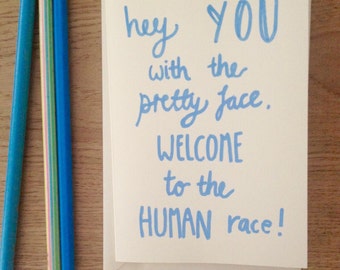 hey YOU
with the
pretty face.
WELCOME
to the
HUMAN race!